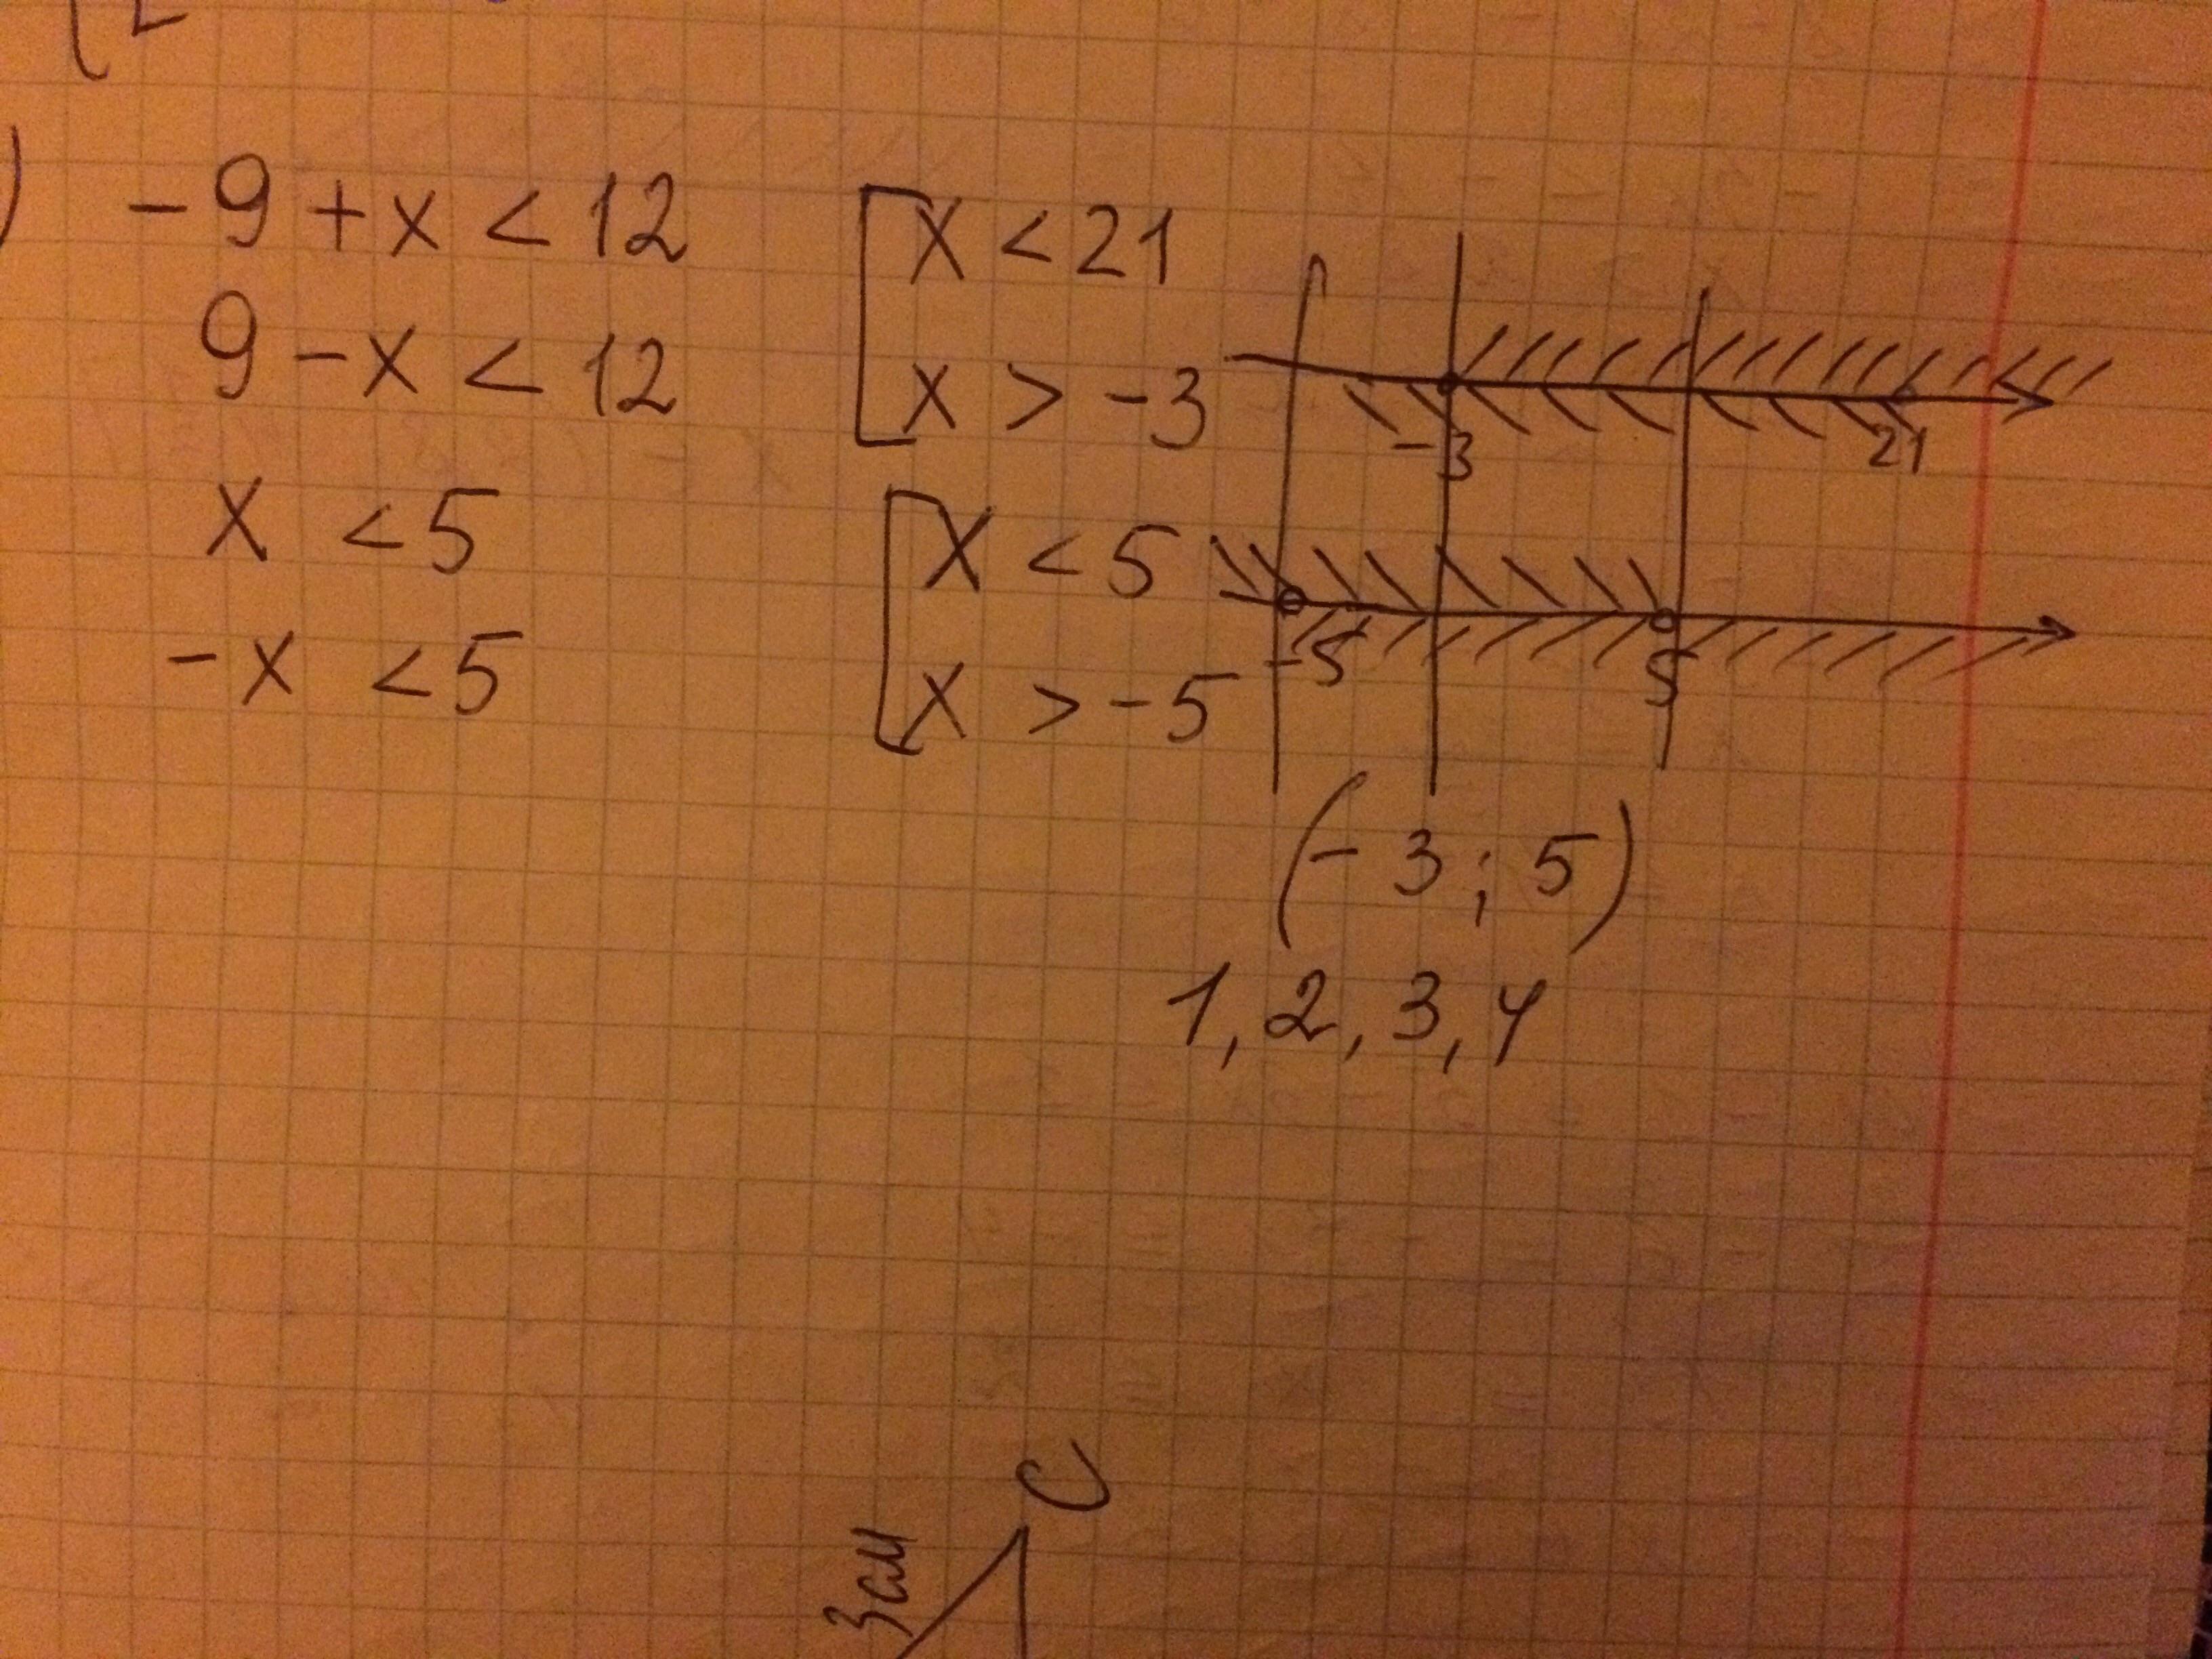 -9+x<12
9-x<12
x <5
-x <5
x<21
x>-3
x<5
x>-5
-3
21
-5
5
(-3;5)
1,2,3,4
C
3см